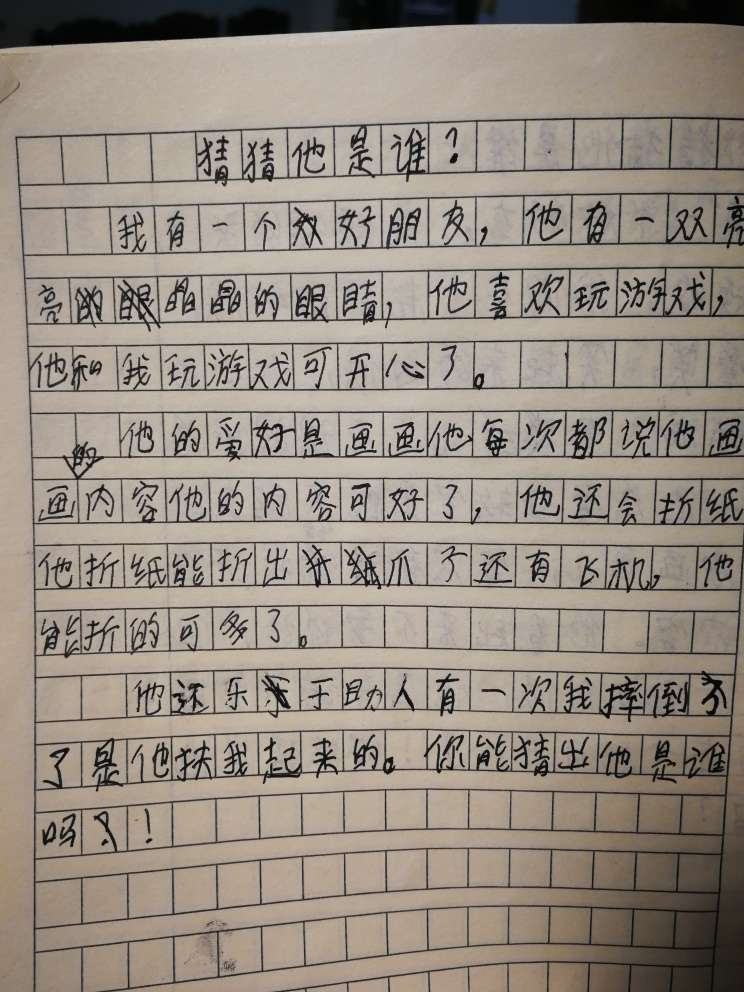 猜猜他是谁？
我有一个好朋友，他有一双亮
亮晶晶的眼睛，他喜欢玩游戏，
他和我玩游戏可开心了。
他的爱好是画画他每次都说他画
的
画内容他的内容可好了，他还会折纸
他折纸能折出爪子还有飞机，他
能折的可多了。
他还乐于助人有一次我摔倒
了是他扶我起来的。你能猜出他是谁
吗！